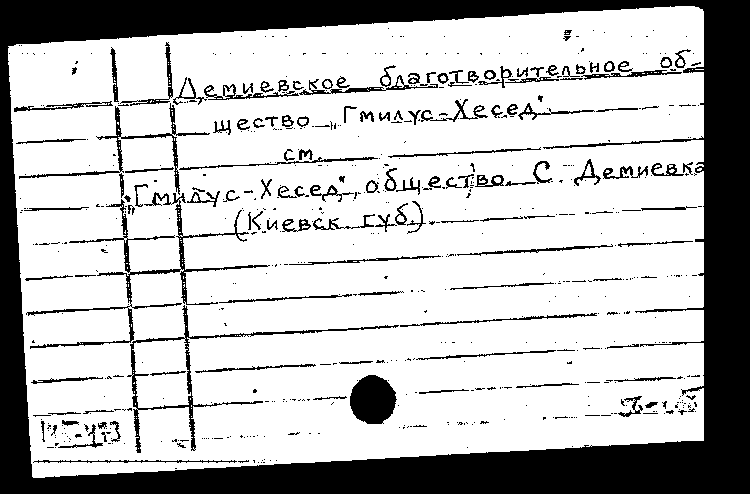 Демиевское благотворительное об-
щество „Гмилус-Хесед“.
см.
„Гмилус-Хесед“, общество. С. Демиевка
(Киевск. губ.).